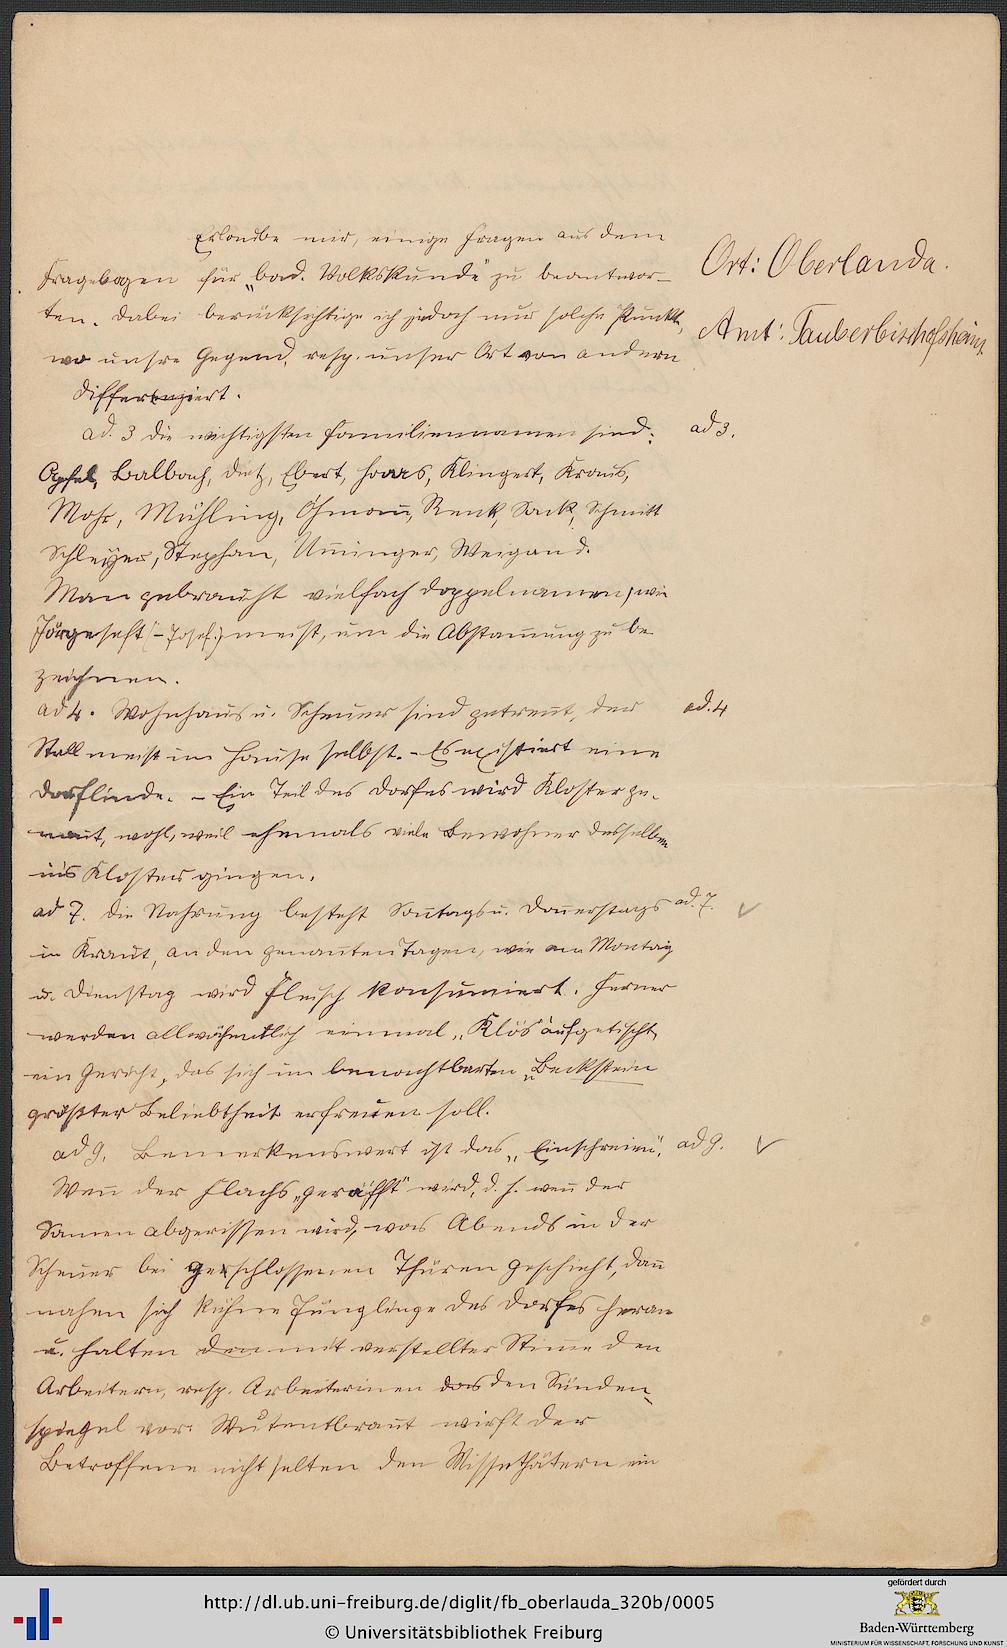 Erlaube mir, einige Fragen aus dem
Fragebogen für „bad. Volkskunde" zu beantwor-
ten. Dabei berücksichtige ich jedoch nur solche Punkte,
wo unsre Gegend, resp. unser Ort von andern
differenziert.
ad. 3 die wichtigsten Familiennamen sind:
Apfel, Balbach, Dietz, Ebert, Haas, Klingert, Kraus,
Mohr, Mühling, Renk, Sack, Schmitt
Schleyer, Stephan, Um̄inger, Weigand.
Man gebraucht vielfach Doppelnamen, wie
(-Josef.) meist, um die Abstam̄ung zu be-
zeichnen.
ad 4. Wohnhaus u. Scheuer sind getren̄t, der
Stall meist im Hause selbst. - Es existiert eine
Dorflinde. - Ein Teil des Dorfes wird Kloster ge-
nan̄t, wohl, weil ehemals viele Bewohner desselben
ins Kloster gingen.
ad 7. die Nahrung besteht Son̄tags u. Don̄erstags
in Kraut, an den genan̄ten Tagen, wie am Montag
u. Dienstag wird Fleisch konsumiert. Ferner
werden allwöchentlich einmal „Klös" aufgetischt,
ein Gericht, das sich im benachbarten „Beckstein
größter Beliebtheit erfreuen soll.
ad 9. Bemerkenswert ist das „Einschreien".
Wen̄ der Flachs „geräfft" wird, d. h. wen̄ der
Samen abgerissen wird, was Abends in der
Scheuer bei geschlossenen Thüren geschieht, dan̄
nahen sich kühne Jünglinge des Dorfes heran
u. halten den mit verstellter Stim̄e den
Arbeitern, resp. Arbeiterinen das den Sünden-
spiegel vor. Wutentbran̄t wirft der
Betroffene nicht selten den Missethätern ein
Ort: Oberlauda.
Amt: Tauberbischofsheim.
ad 3.
ad. 4
ad. 7.
ad 9.
http://dl.ub.uni-freiburg.de/diglit/fb_oberlauda_320b/0005
© Universitätsbibliothek Freiburg
gefördert durch
Baden-Württemberg
MINISTERIUM FÜR WISSENSCHAFT, FORSCHUNG UND KUNST